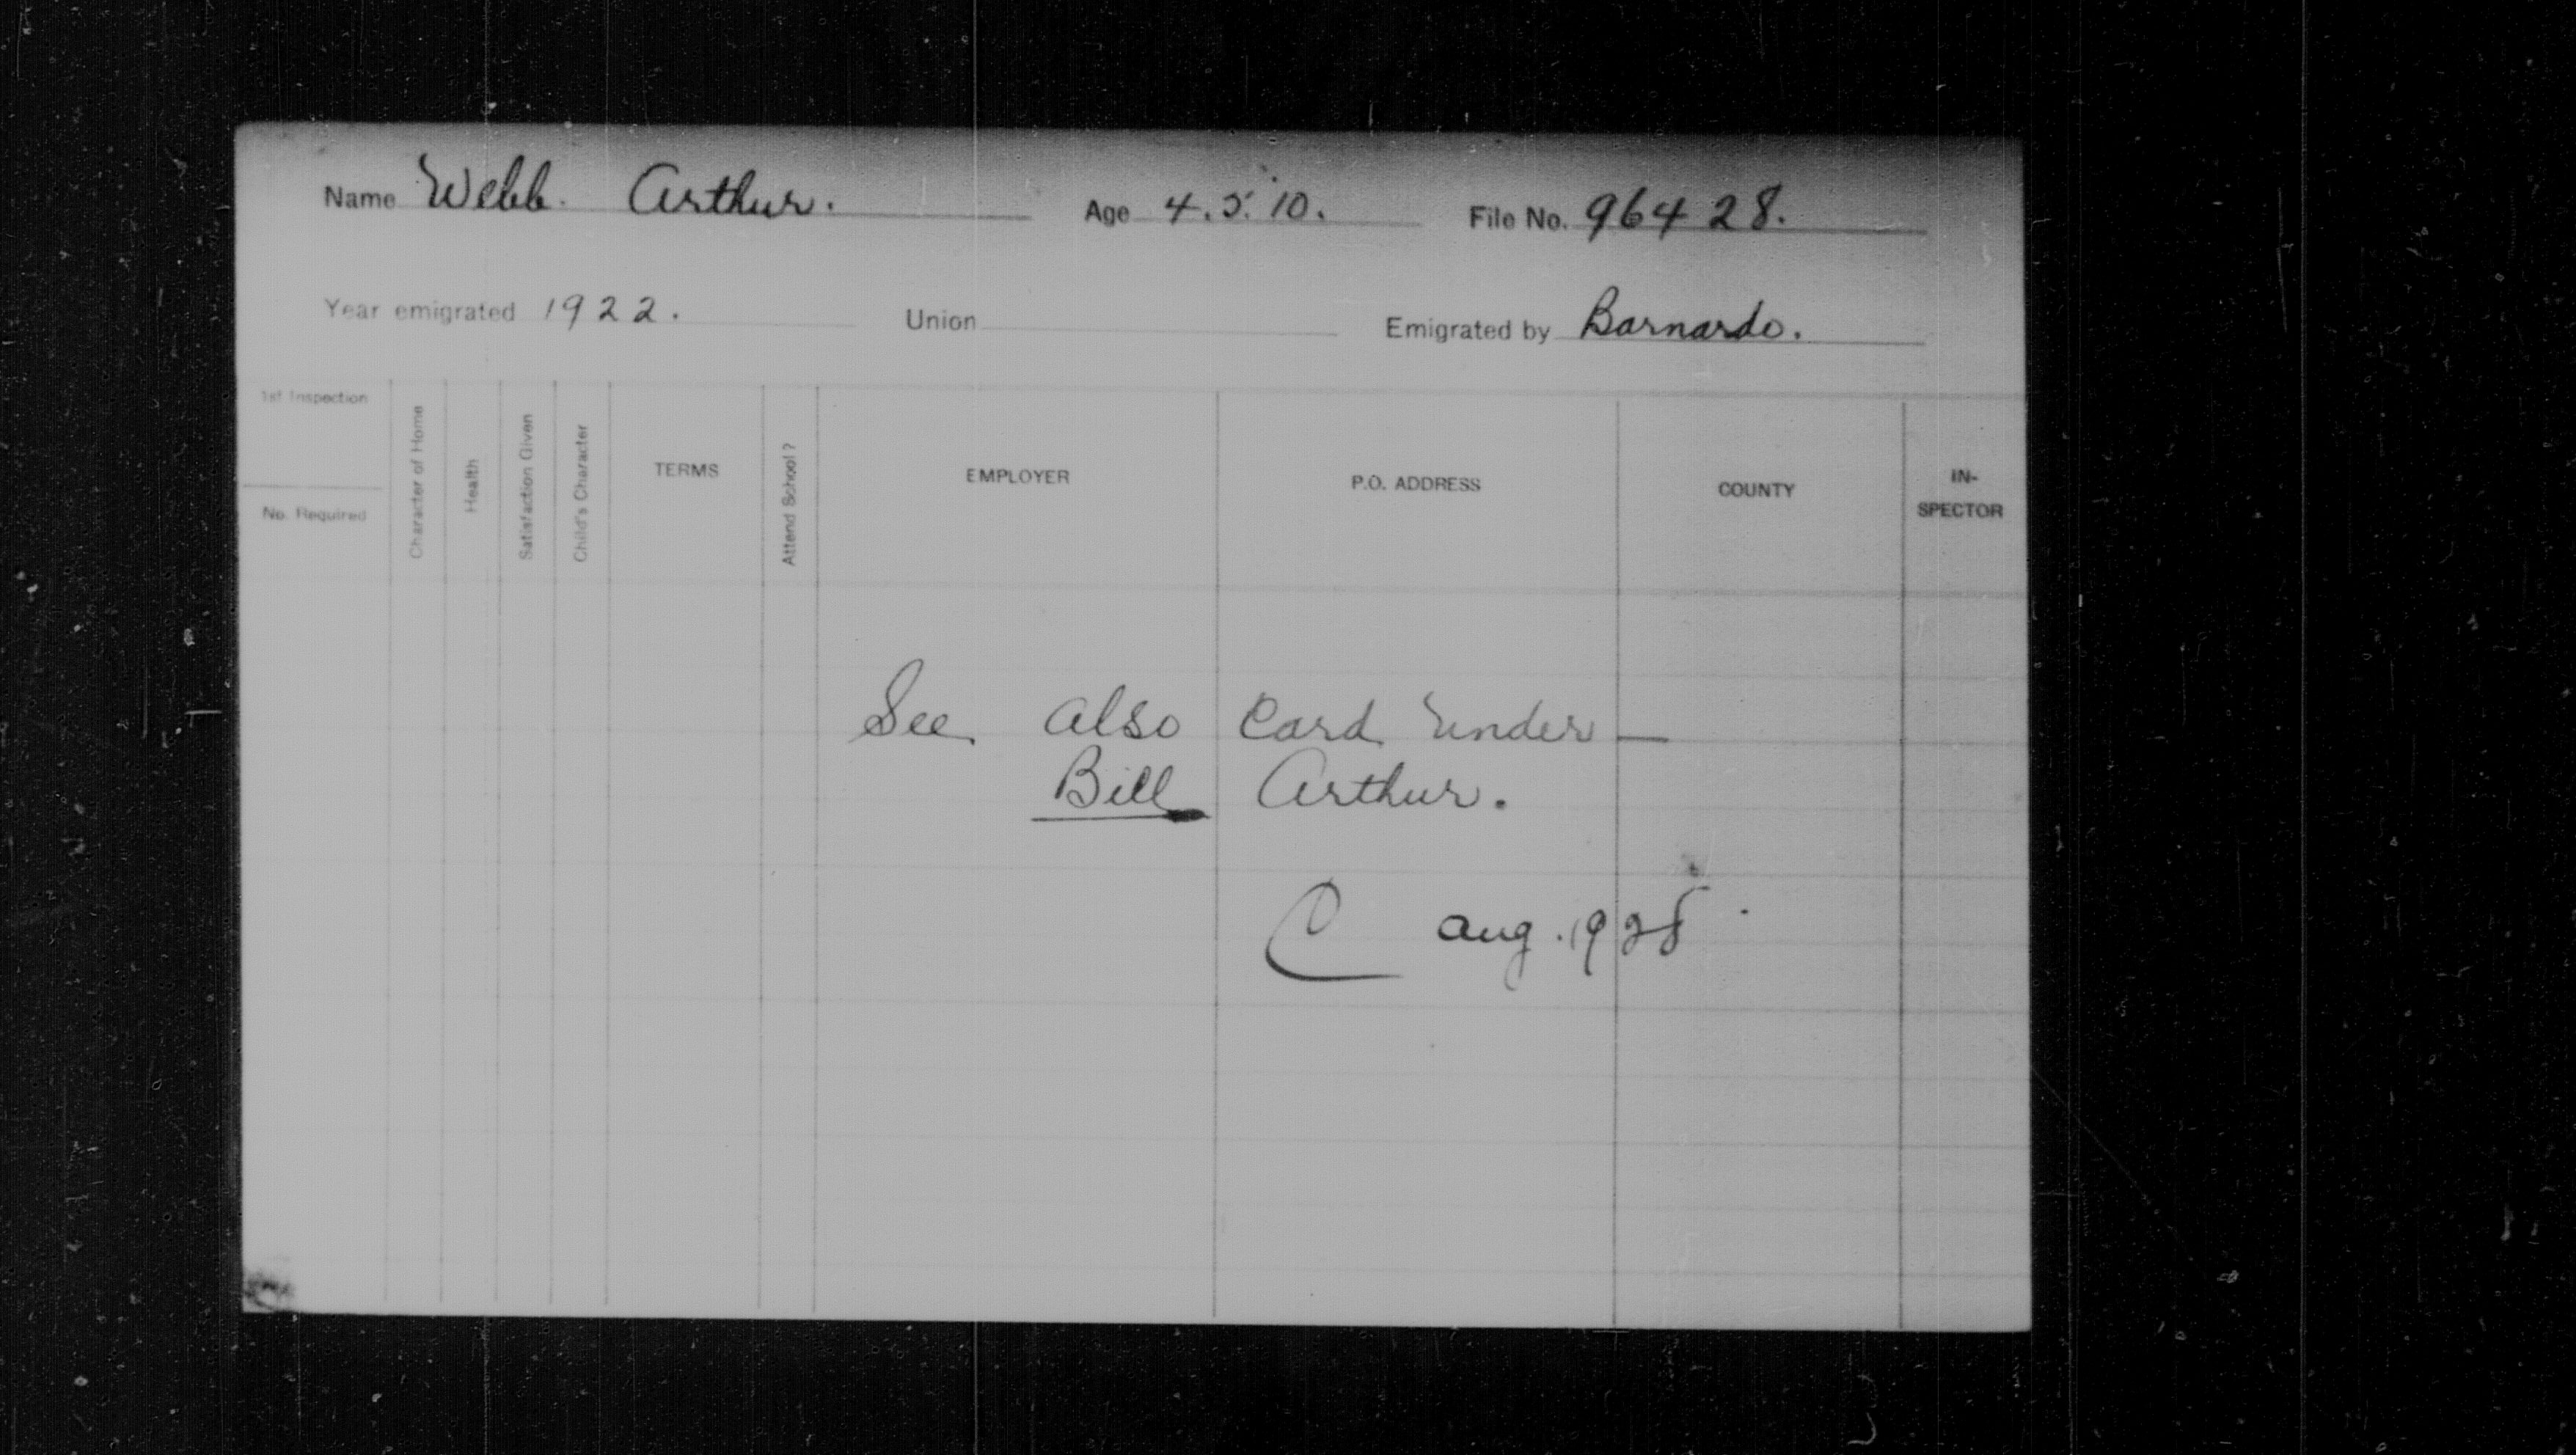 Name Webb. Arthur. Age 4.5.10. File No. 96428.
Year emigrated 1922. Union Emigrated by Barnardo.
1st Inspection
No. Required
Character of Home
Health
Satisfaction Given
Child's Character
TERMS
Attend School?
EMPLOYER
P.O. ADDRESS
COUNTY
IN-
SPECTOR
See also Card under —
Bill Arthur.
C Aug. 1928.